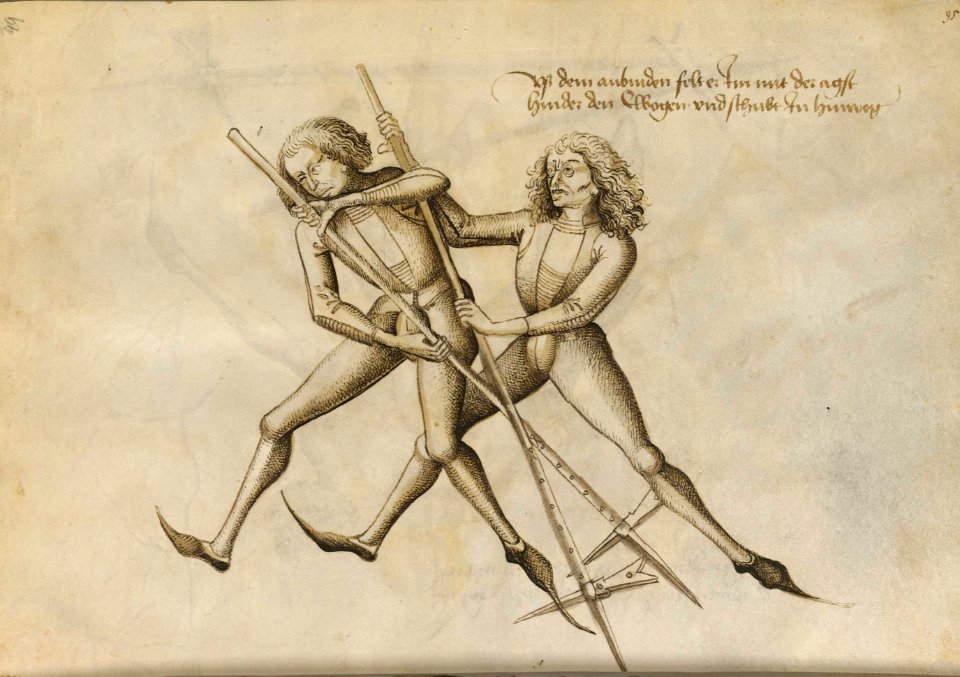 95
Vß dem anbinden felt er Im mit der agst
hinder den Elbogen vnd schibt In hinweg